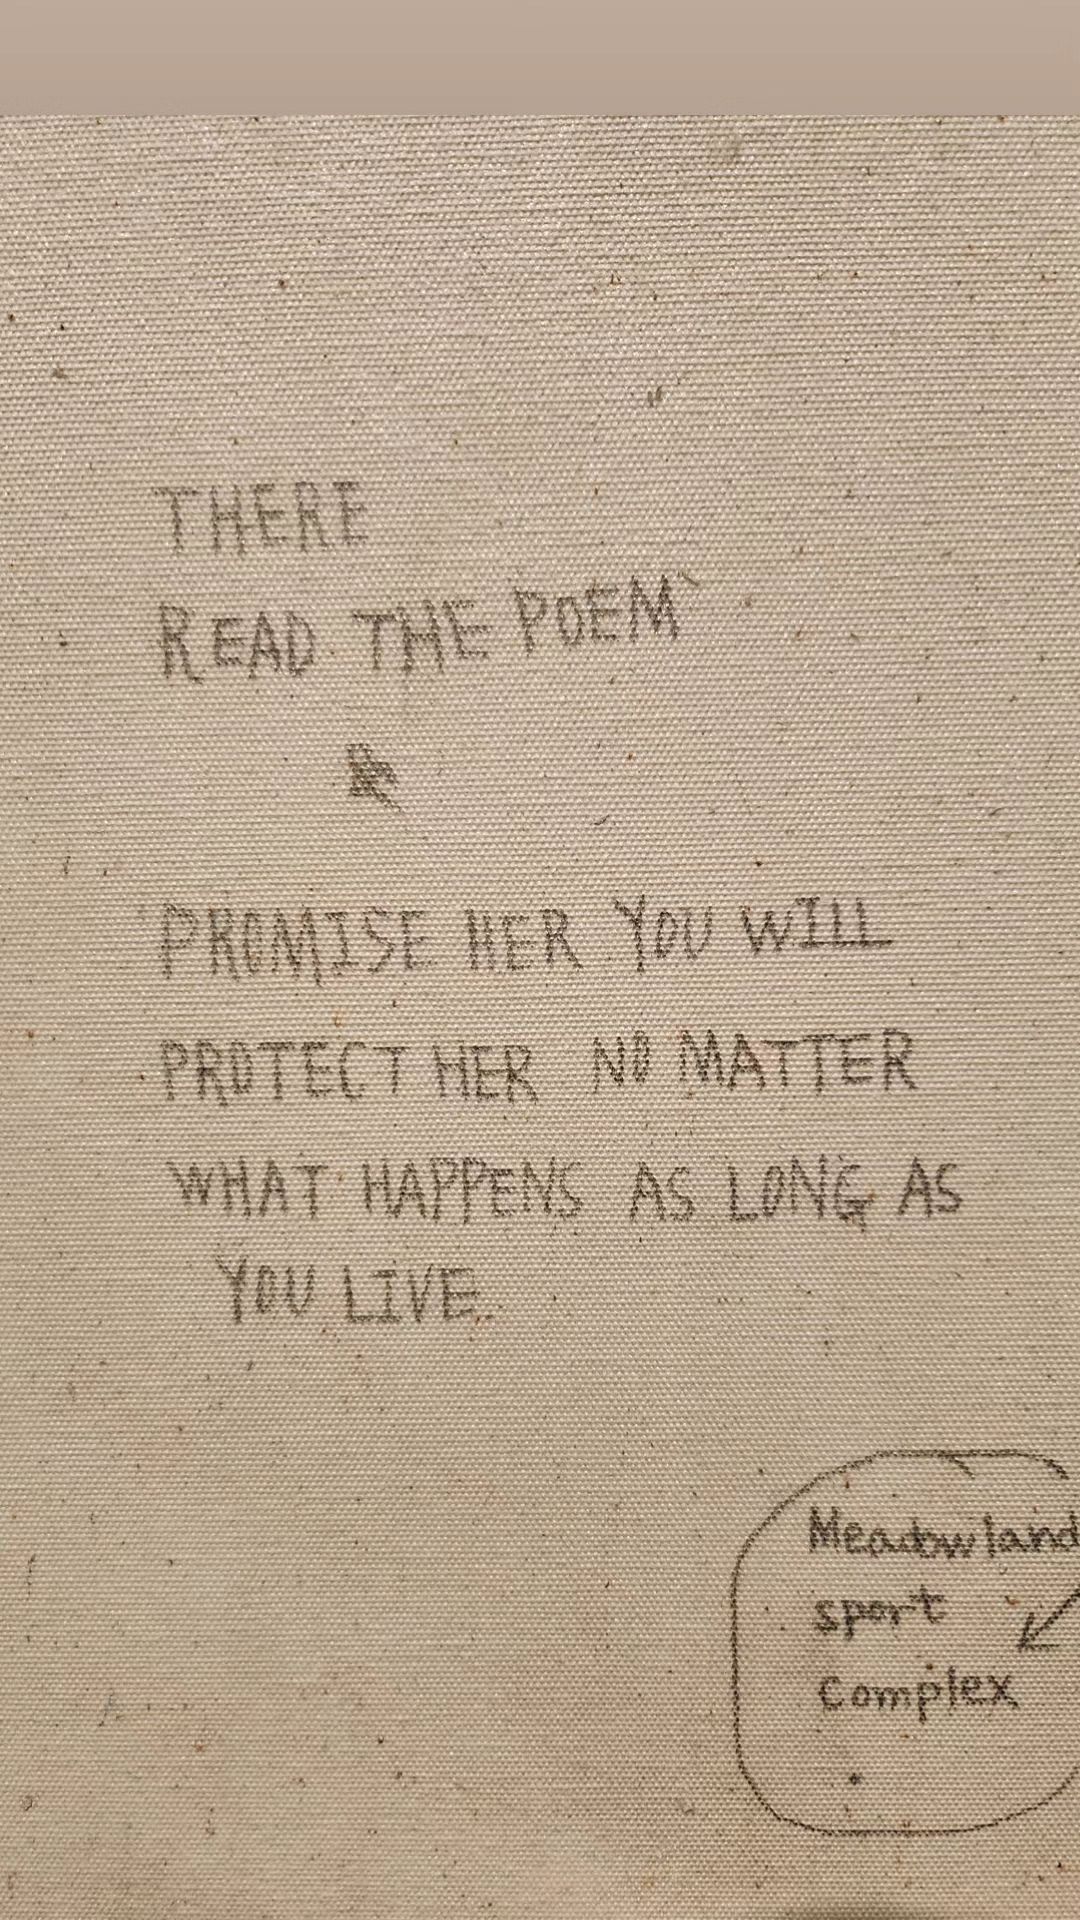 THERE
READ THE POEM
PROMISE HER YOU WILL
PROTECT HER NO MATTER
WHAT HAPPENS AS LONG AS
YOU LIVE.
Meadowland
sport
Complex